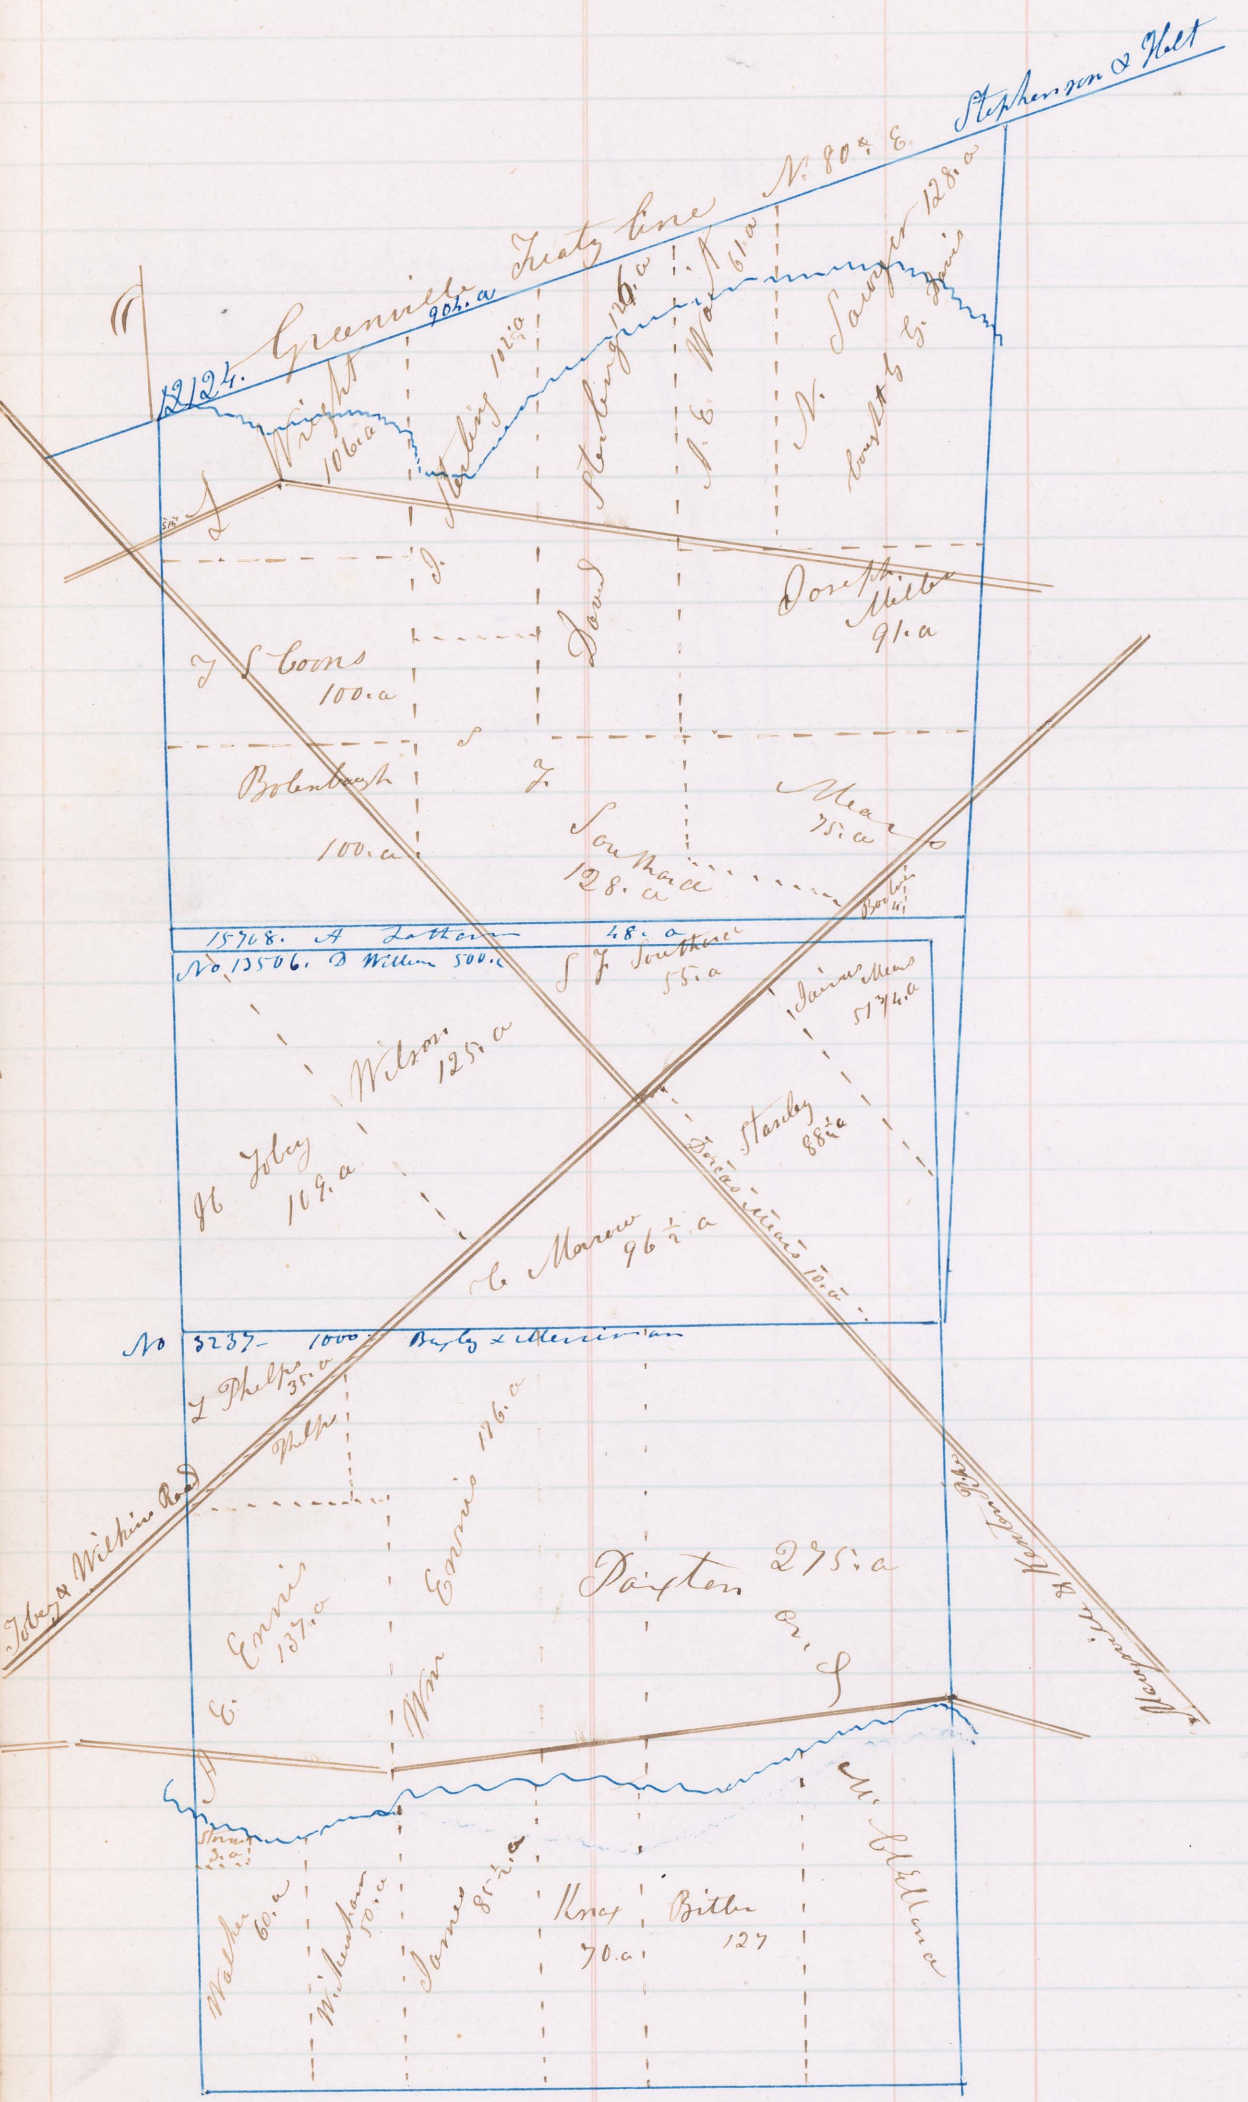 Stephenson & Holt
Greenville Treaty line N. 80° E.
12124.
904. a
Wright
106. a
J. Sterling 102½ a
David Sterling 126. a
A. E. Wait 61. a
N. Sawyer 128. a
bought by G. Davis
Joseph Miller
91. a
T S Coons
100. a
Bolenbaugh
100. a
S F Southard
128. a
Mears
75. a
15708. A Latham 48. a
No 13506. D Willem 500. a
S F Southard
55. a
Jairus Mears
51 3/4. a
Wilson
125. a
H Tobey
109. a
Stanley
88½ a
Dorcas Mears 10. a
C Morrow
96 ½ a
No 3237 - 1000. Bayley & Merriman
L Phelps
35. a
Phelps
Tobey & Wilkins Road
A E. Ennis
137. a
Wm Ennis 176. a
Paxton 275. a
and
Marysville & Kenton Pike
Storms
3. a
Walker
60. a
Wickersham
50. a
James
85 ½. a
Knox
70. a
Bitler
127
McClelland